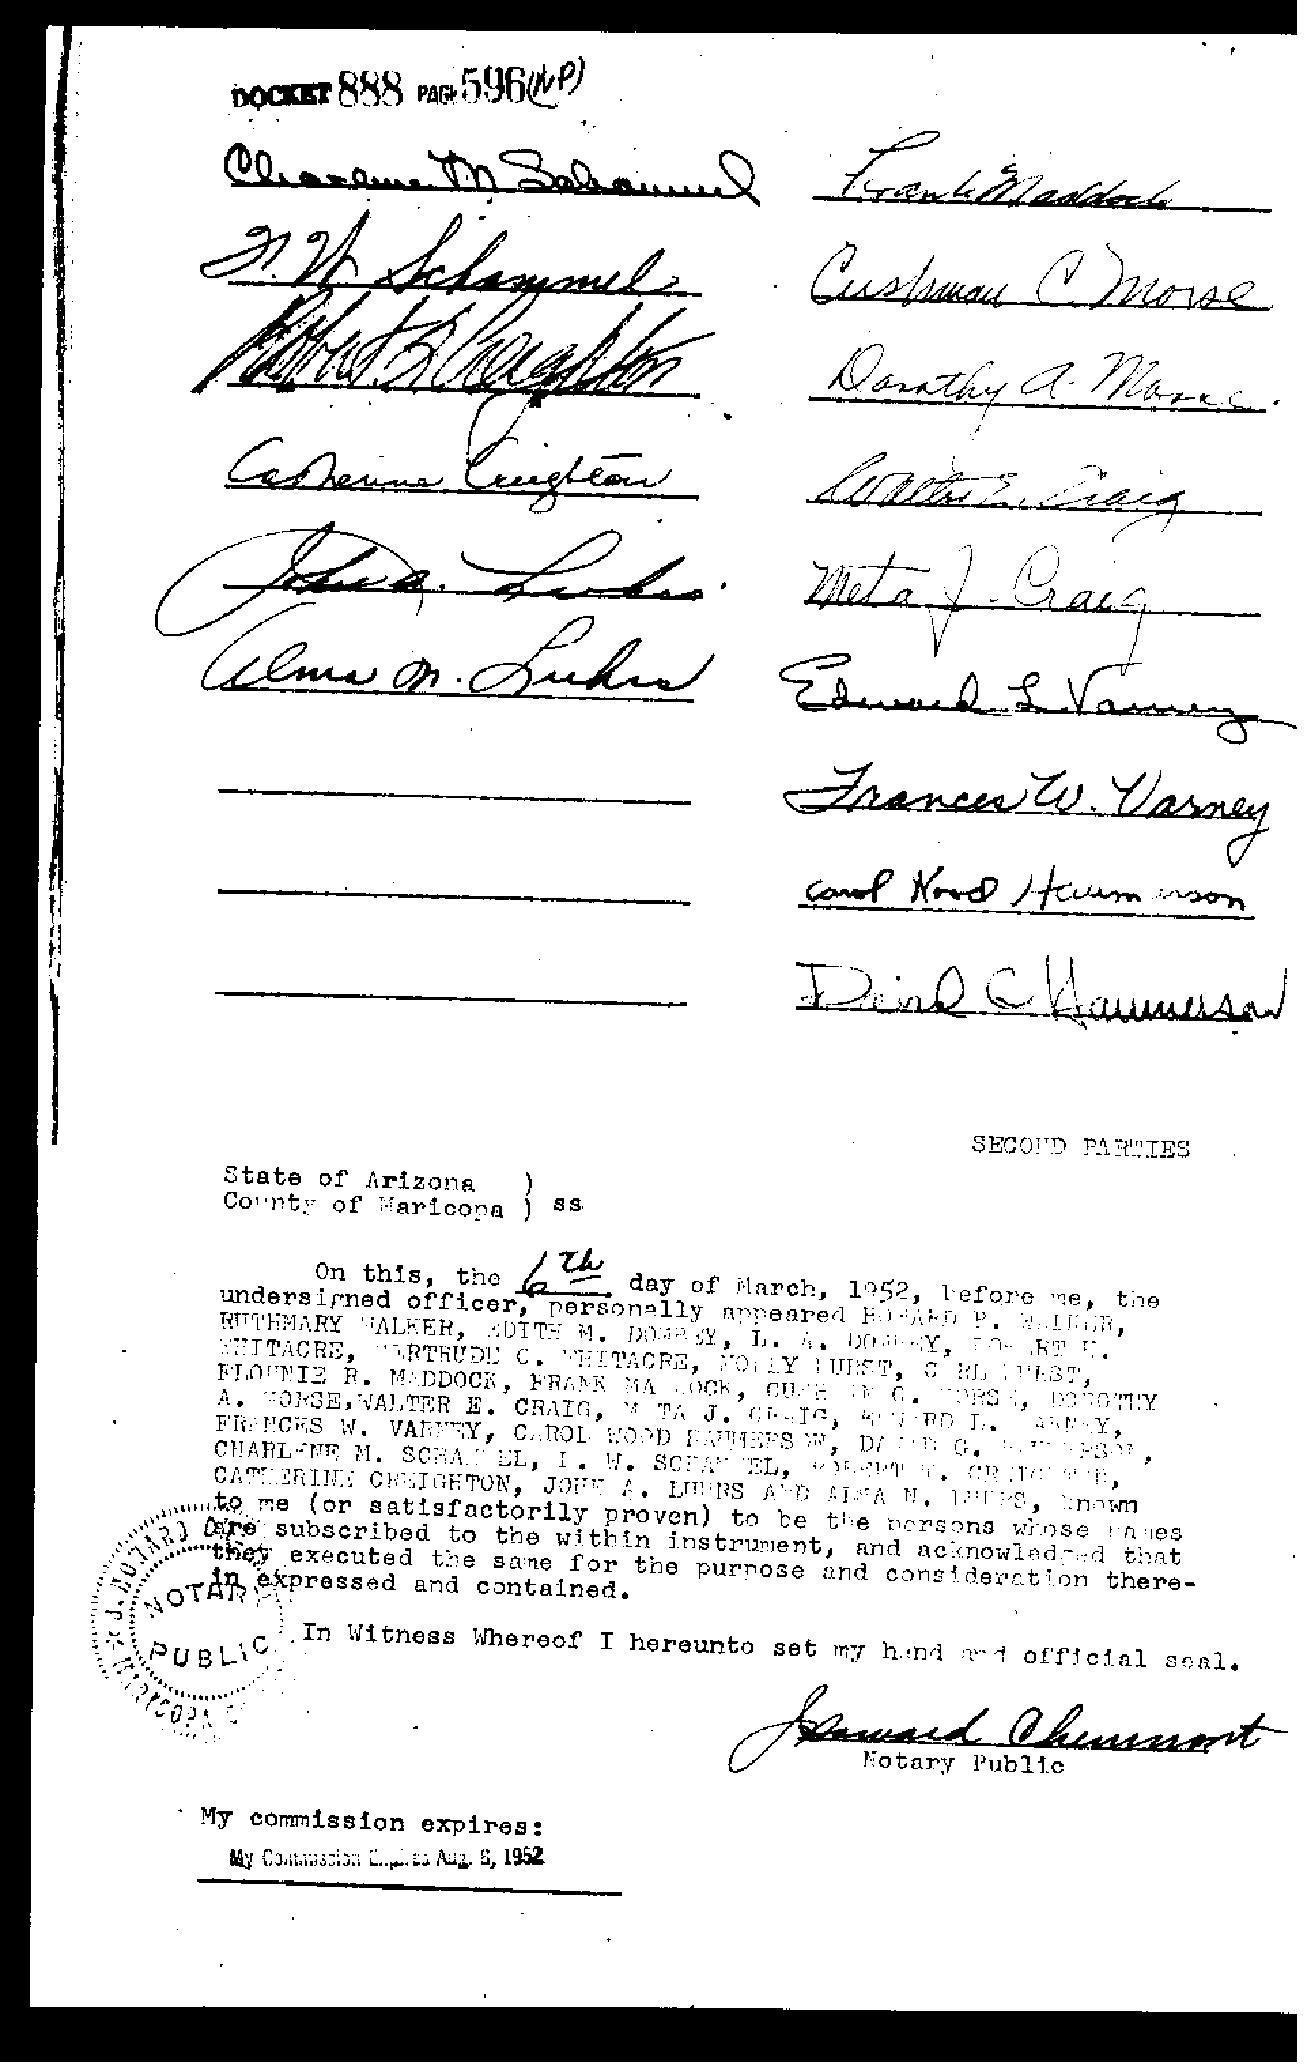 DOCKET 888 PAGE 596 (NP)
Charlene M Schammel
F. W. Schammel
Robert Creighton
Catherine Creighton
John A. Luhrs
Alma M. Luhrs
Frank Maddock
Cushman C. Morse
Dorothy A. Morse
Walter E. Craig
Meta J. Craig
Edward L Varney
Frances W. Varney
Carol Wood
David C
SECOND PARTIES
State of Arizona )
County of Maricopa ) ss
On this, the 6th day of March, 1952, before me, the
undersigned officer, personally appeared
RUTHMARY WALKER, EDITH M. L. A.
WHITACRE, GERTRUDE C. WHITACRE, HURST,
R. MADDOCK, FRANK MADDOCK, C. MORSE, DOROTHY
A. MORSE, WALTER E. CRAIG, META J. CRAIG, EDWARD L. VARNEY,
FRANCES W. VARNEY, CAROL WOOD
CHARLENE M. W.
CATHERINE CREIGHTON, JOHN A. LUHRS AND ALMA M. LUHRS, known
to me (or satisfactorily proven) to be the persons whose names
are subscribed to the within instrument, and acknowledged that
they executed the same for the purpose and consideration there-
in expressed and contained.
NOTARY
PUBLIC
In Witness Whereof I hereunto set my hand and official seal.
Notary Public
My commission expires:
My Commission Expires Aug. 1952